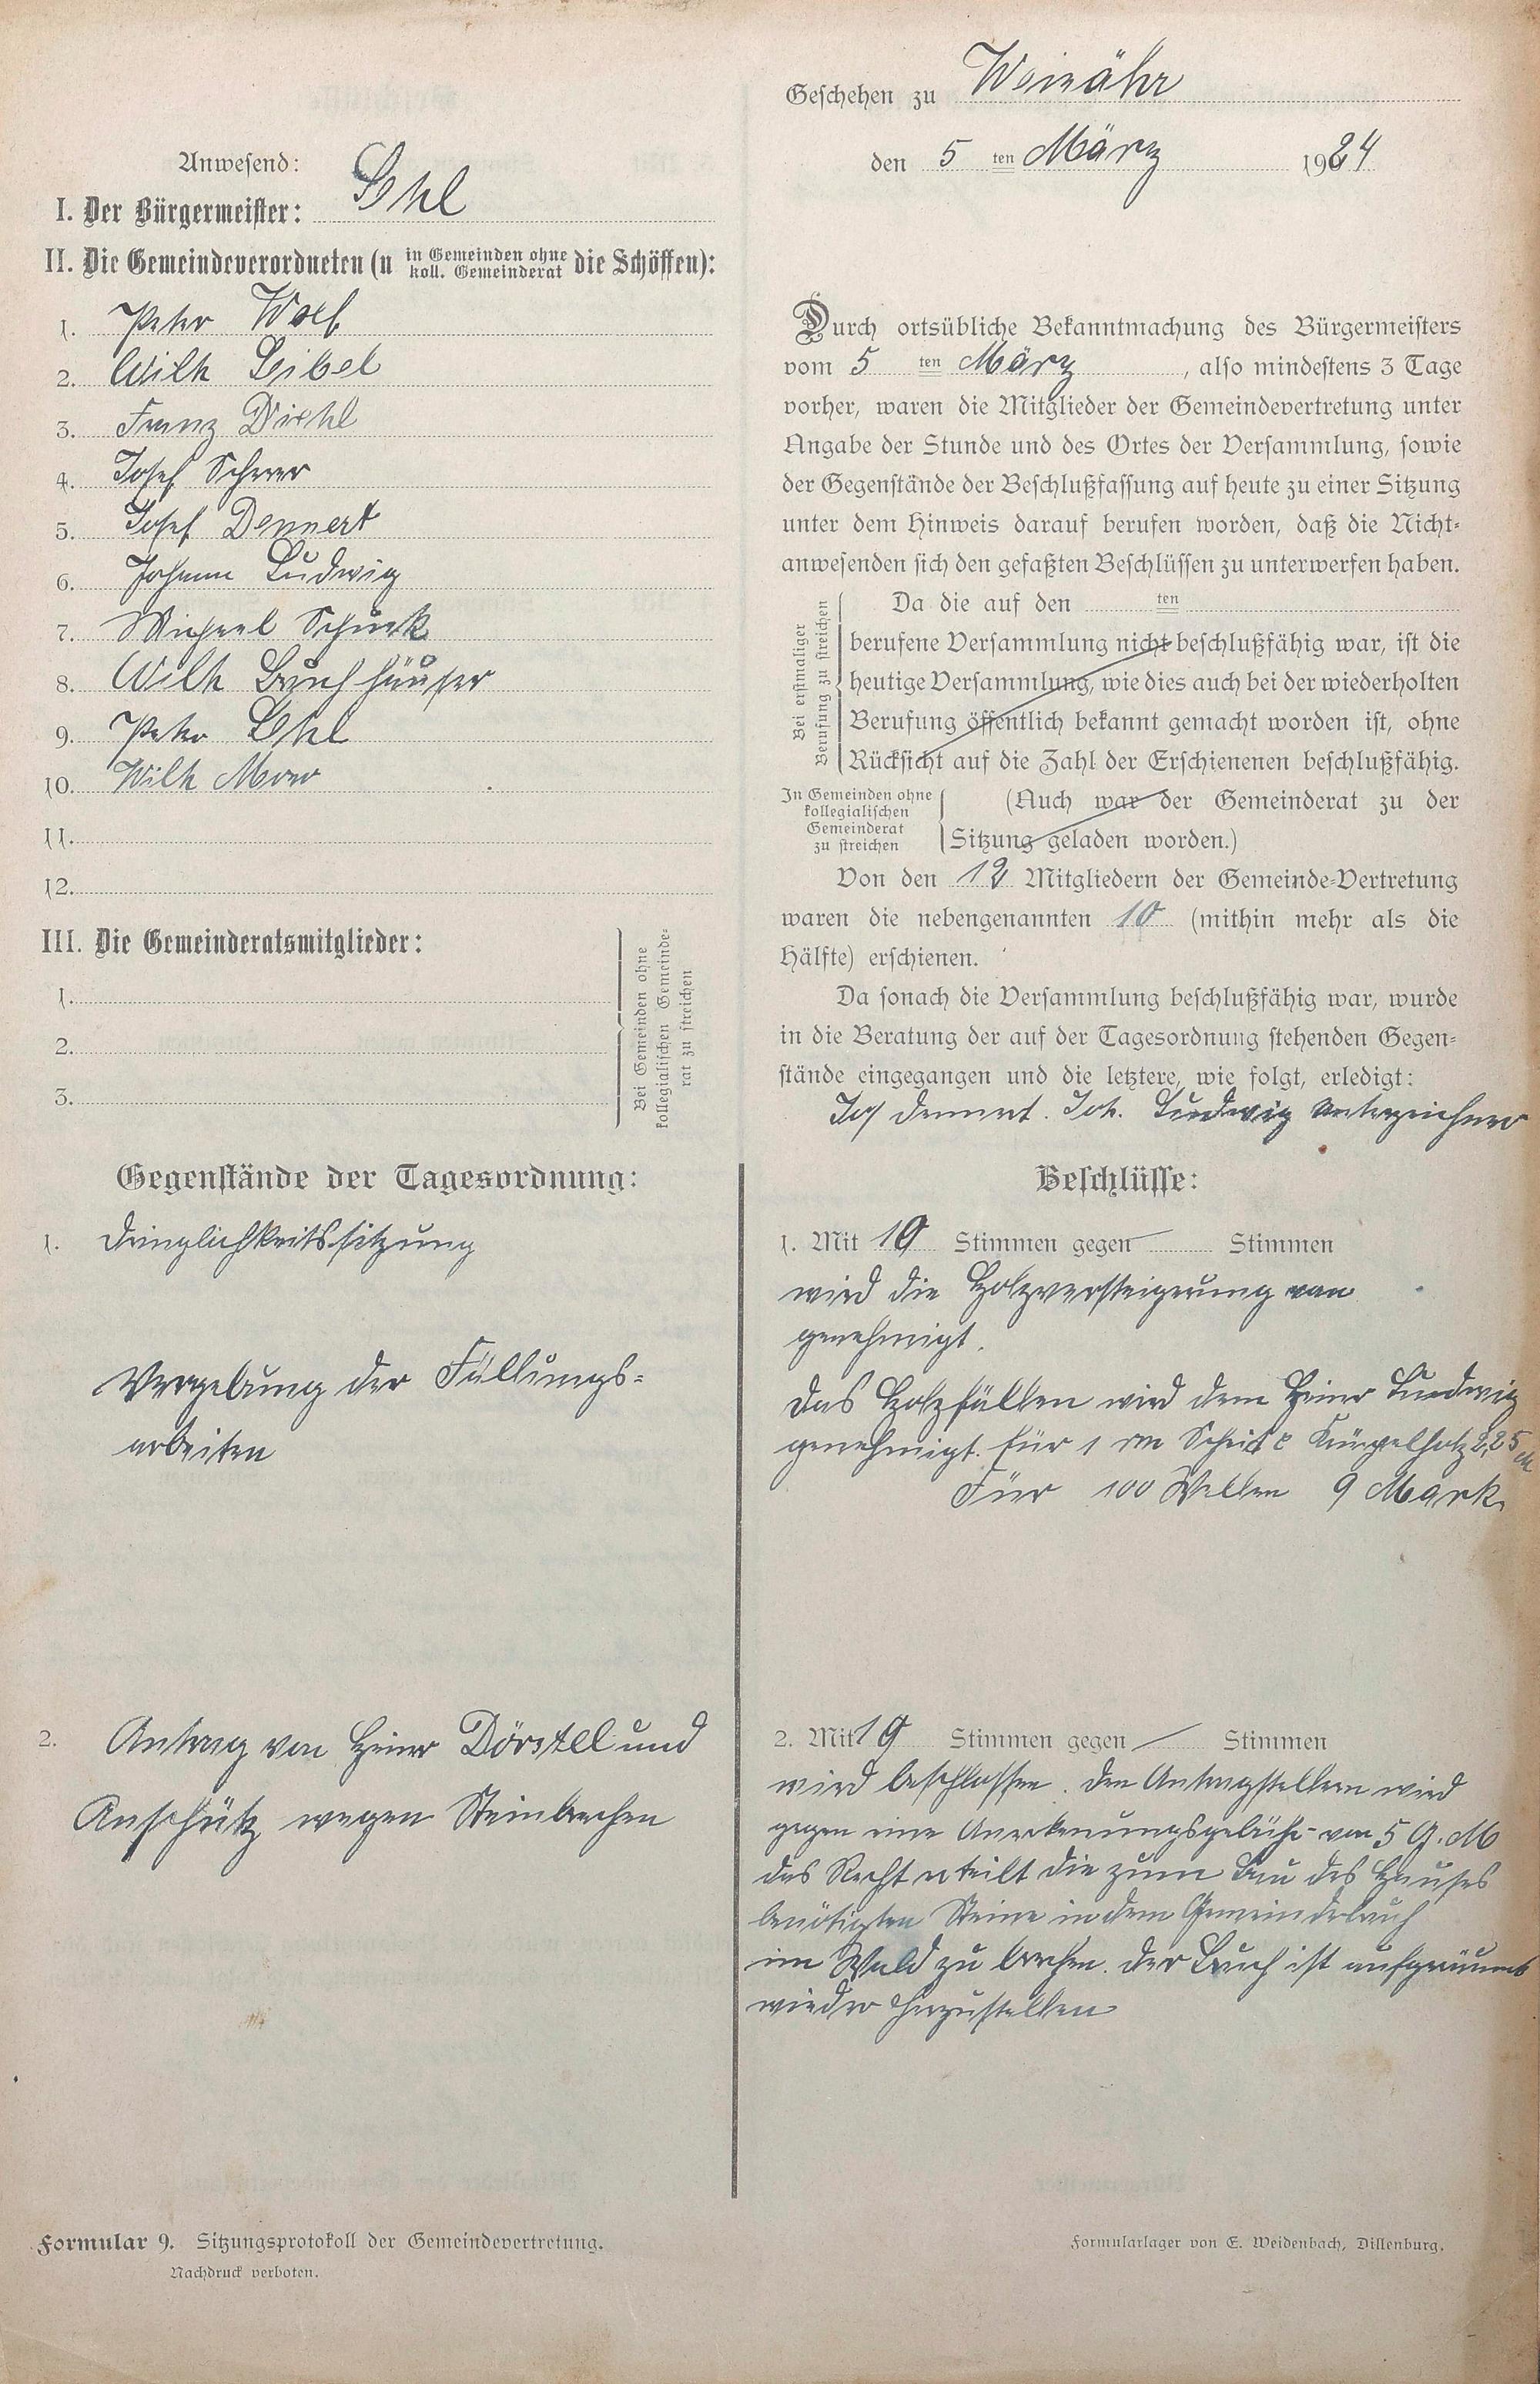 Geschehen zu Weinähr
den 5 ten März 1924
Anwesend:
I. Der Bürgermeister: Ohl
II. Die Gemeindeverordneten (u in Gemeinden ohne koll. Gemeinderat die Schöffen):
1. Peter Wolf
2. Wilh Leibel
3. Franz Diehl
4. Josef Scherer
5. Josef Dennert
6. Johann Ludwig
7. Michael Schunk
8. Wilh Buchhäuser
9. Peter Ohl
10. Wilh
11.
12.
III. Die Gemeinderatsmitglieder:
1.
2.
3.
Bei Gemeinden ohne
kollegialischen Gemeinde-
rat zu streichen
Durch ortsübliche Bekanntmachung des Bürgermeisters
vom 5 ten März, also mindestens 3 Tage
vorher, waren die Mitglieder der Gemeindevertretung unter
Angabe der Stunde und des Ortes der Versammlung, sowie
der Gegenstände der Beschlußfassung auf heute zu einer Sitzung
unter dem Hinweis darauf berufen worden, daß die Nicht-
anwesenden sich den gefaßten Beschlüssen zu unterwerfen haben.
Bei erstmaliger
Berufung zu streichen
Da die auf den ten
berufene Versammlung nicht beschlußfähig war, ist die
heutige Versammlung, wie dies auch bei der wiederholten
Berufung öffentlich bekannt gemacht worden ist, ohne
Rücksicht auf die Zahl der Erschienenen beschlußfähig.
In Gemeinden ohne
kollegialischen
Gemeinderat
zu streichen
(Auch war der Gemeinderat zu der
Sitzung geladen worden.)
Von den 12 Mitgliedern der Gemeinde-Vertretung
waren die nebengenannten 10 (mithin mehr als die
Hälfte) erschienen.
Da sonach die Versammlung beschlußfähig war, wurde
in die Beratung der auf der Tagesordnung stehenden Gegen-
stände eingegangen und die letztere, wie folgt, erledigt:
Jos Dennert. Joh. Ludwig Unterzeichner
Gegenstände der Tagesordnung:
1. Dringlichkeitssitzung
Vergebung der Fällungs-
arbeiten
2. Antrag von Heinr Dörstel und
Anschütz wegen Steinbrechen
Beschlüsse:
1. Mit 10 Stimmen gegen Stimmen
wird die Holzversteigerung
genehmigt.
Das Holzfällen wird dem Heinr Ludwig
genehmigt. Für 1 rm Scheit Knüppelholz 2,25 M
Für 100 Wellen 9 Mark.
2. Mit 10 Stimmen gegen Stimmen
wird beschlossen. Den Antragstellern wird
gegen eine Anerkennungsgebühr von 5 G. M
das Recht erteilt die zum Bau des Hauses
benötigten Steine in dem Gemeindebruch
im Wald zu brechen. Der Bruch ist aufgeräumt
wieder herzustellen
Formular 9. Sitzungsprotokoll der Gemeindevertretung.
Nachdruck verboten.
Formularlager von E. Weidenbach, Dillenburg.